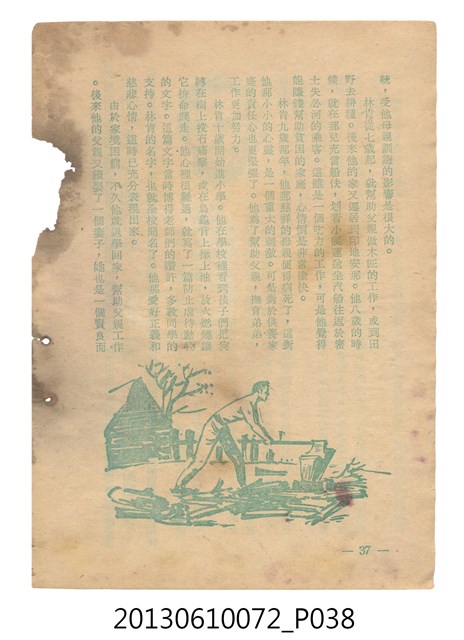 統，受他母親訓誨的影響是很大的。
林肯從七歲起，就幫助父親做木匠的工作，或到田
野去耕種。後來他的家又遷居到印地安那。他八歲的時
候，就在那兒充當船伕，划着小
士失必河的乘客。這雖是一個吃力的工作，可是他覺得
能賺錢幫助貧困的家庭，心情倒是非常愉快。
林肯九歲那年，他那慈祥的母親便得病死了，這對
他那小小的心靈，是一個重大的刺激。可是對於侍養家
庭的責任心也更堅強了。他為了幫助父親，撫育弟弟，
工作更加努力。
林肯十歲開始進小學。他在學校裡看到孩子們把狗
綁在樹上投石痛擊，或在烏龜背上
它拚命爬走。他心裡很難過，就寫了一篇防止虐待動物
的文字。這篇文字當時博得老師們的讚許，多數同學的
支持。林肯的名字，也就全校聞名了。他熱愛好正義和
慈悲心情，這時已充分表現出來。
由於家境困窮，不久他就退學回家，幫助父親工作
。後來他的父親又續娶了一個妻子，她也是一個賢良而
— 37 —
20130610072_P038